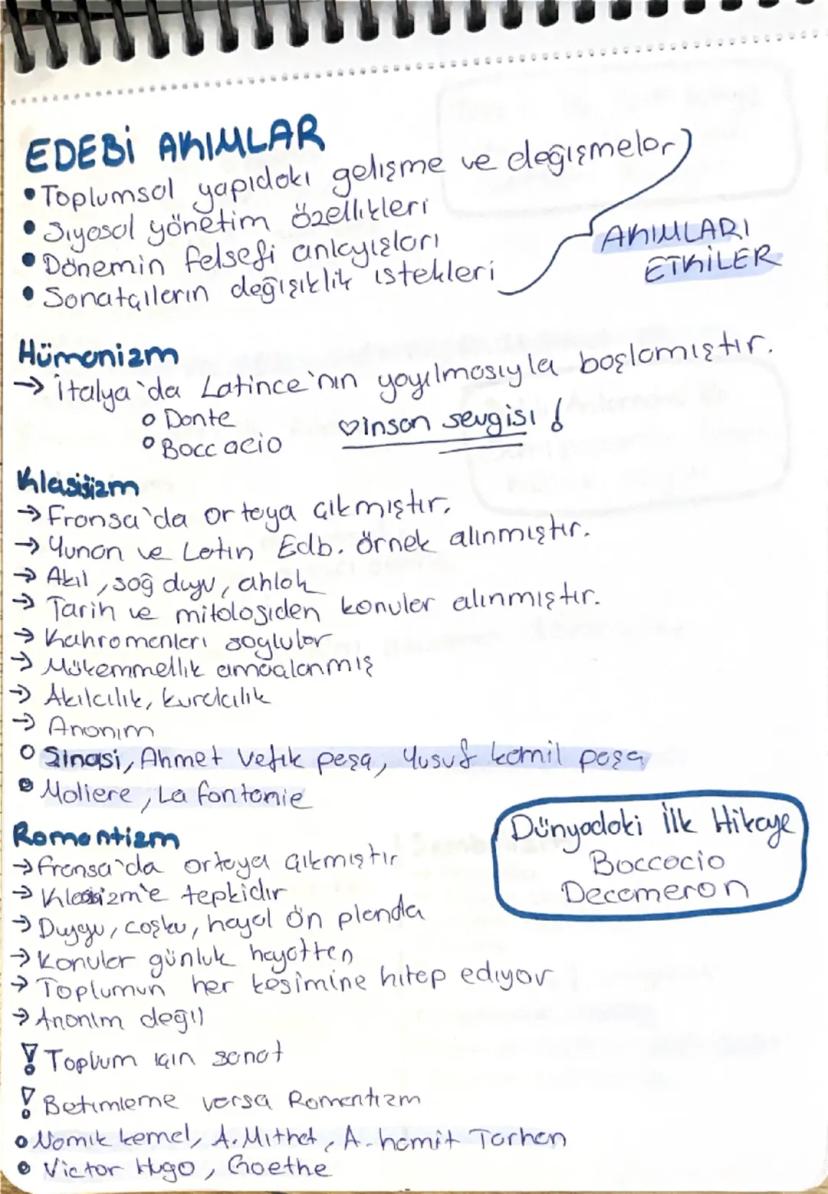 EDEBİ AKIMLAR
• Toplumsal yapıdaki gelişme ve değişmeler
• Siyasal yönetim özellikleri
• Dönemin felsefi anlayışları
• Sanatçıların değişiklik istekleri
AKIMLARI
ETKİLER
Hümanizm
→ İtalya'da Latince'nin yayılmasıyla başlamıştır.
○ Dante
○ Boccacio
♡insan sevgisi !
Klasisizm
→ Fransa'da ortaya çıkmıştır.
→ Yunan ve Latin Edb. örnek alınmıştır.
→ Akıl, sağ duyu, ahlak
→ Tarih ve mitolojiden konular alınmıştır.
→ Kahramanları soylular
→ Mükemmellik amaçlanmış
→ Akılcılık, kuralcılık
→ Anonim
○ Şinasi, Ahmet Vefik paşa, Yusuf kamil paşa
• Moliere, La fontanie
Romantizm
→ Fransa'da ortaya çıkmıştır
→ Klasizm'e tepkidir
→ Duygu, coşku, hayal ön planda
→ Konular günlük hayattan
→ Toplumun her kesimine hitap ediyor
→ Anonim değil
! Toplum için sanat
! Betimleme varsa Romantizm
○ Namık kemal, A. Mithat, A. hamit Tarhan
• Victor Hugo, Goethe
Dünyadaki İlk Hikaye
Boccocio
Decameron